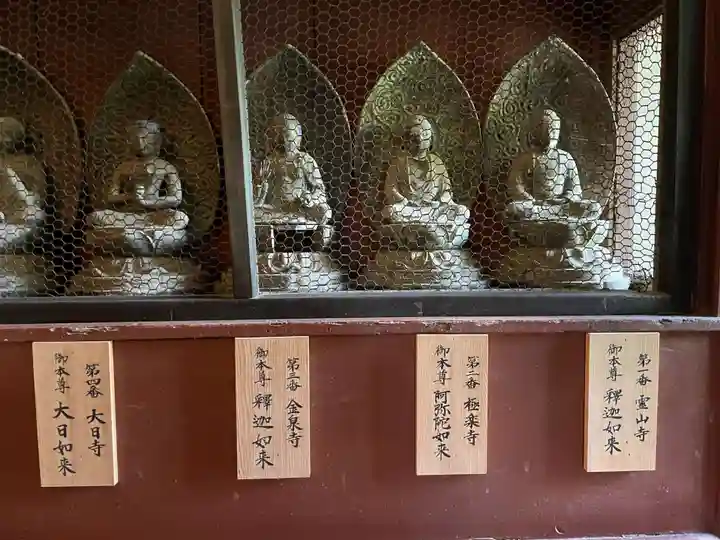 第一番 霊山寺
御本尊 釋迦如来
第二番 極楽寺
御本尊 阿弥陀如来
第三番 金泉寺
御本尊 釋迦如来
第四番 大日寺
御本尊 大日如来